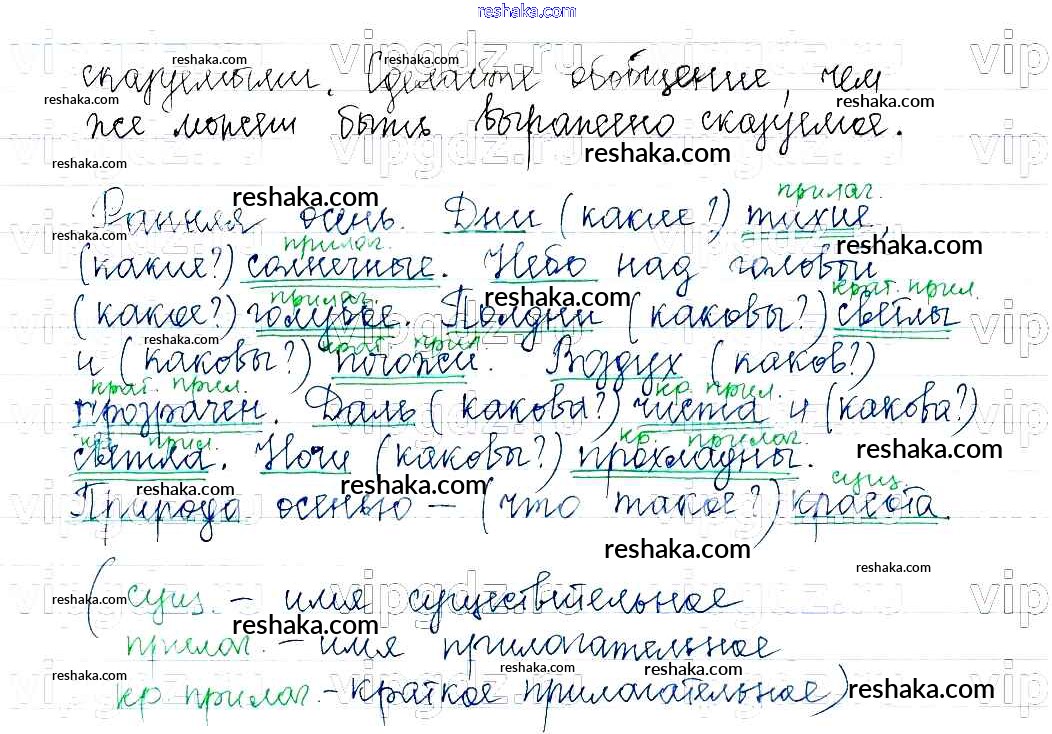 reshaka.com
сказуемыми. Сделайте обобщение, чем
же может быть выражено сказуемое.
прилаг.
Ранняя осень. Дни (какие?) тихие,
прилаг.
(какие?) солнечные. Небо над головой
прилаг. крат. прил.
(какое?) голубое. Полдни (каковы?) светлы
крат. прил.
и (каковы?) погожи. Воздух (каков?)
крат. прил. кр. прил.
прозрачен. Даль (какова?) чиста и (какова?)
кр. прил. кр. прилаг.
светла. Ночи (каковы?) прохладны.
сущ.
Природа осенью – (что такое?) красота.
(сущ. – имя существительное
прилаг. – имя прилагательное
кр прилаг – краткое прилагательное)